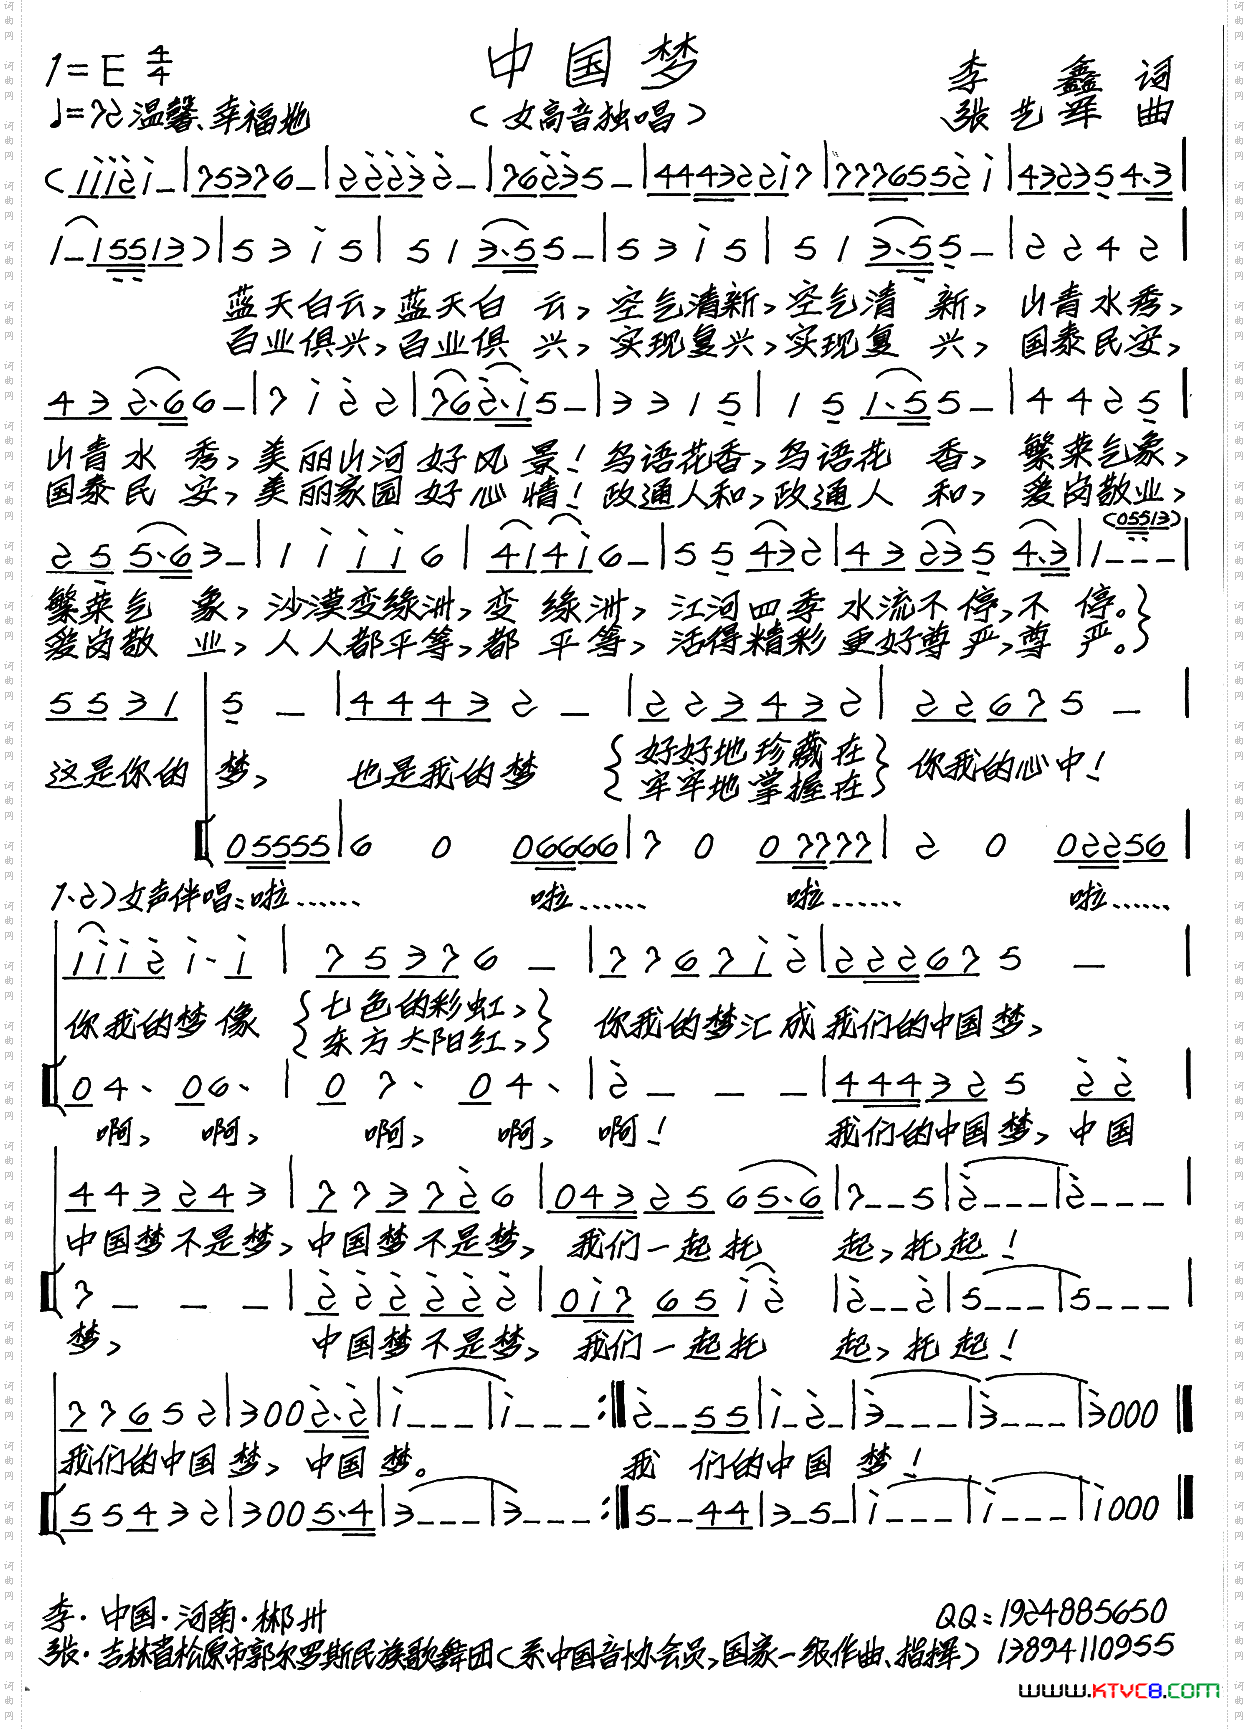 中国梦
1=E 4/4
李 鑫 词
♩=72 温馨、幸福地
（女高音独唱）
张艺军 曲
蓝天白云，蓝天白 云，空气清新，空气清 新，山青水秀，
百业俱兴，百业俱 兴，实现复兴，实现复 兴，国泰民安，
山青水 秀，美丽山河好风景！鸟语花香，鸟语花 香，繁荣气象，
国泰民 安，美丽家园好心情！政通人和，政通人 和，爱岗敬业，
繁荣气 象，沙漠变绿洲，变 绿洲，江河四季水流不停，不 停。
爱岗敬 业，人人都平等，都 平等，活得精彩更好尊严，尊 严。
这是你的 梦， 也是我的梦 好好地珍藏在 你我的心中！
牢牢地掌握在
1、2）女声伴唱：啦…… 啦…… 啦…… 啦……
你我的梦像 七色的彩虹， 你我的梦汇成我们的中国梦，
东方太阳红，
啊， 啊， 啊， 啊， 啊！ 我们的中国梦，中国
中国梦不是梦，中国梦不是梦，我们一起托 起，托起！
梦， 中国梦不是梦，我们一起托 起，托起！
我们的中国梦，中国梦。 我 们的中国梦！
李·中国·河南·郴州
QQ：1924885650
张·吉林省松原市郭尔罗斯民族歌舞团（系中国音协会员，国家一级作曲、指挥）13894110955
www.KTVC8.com